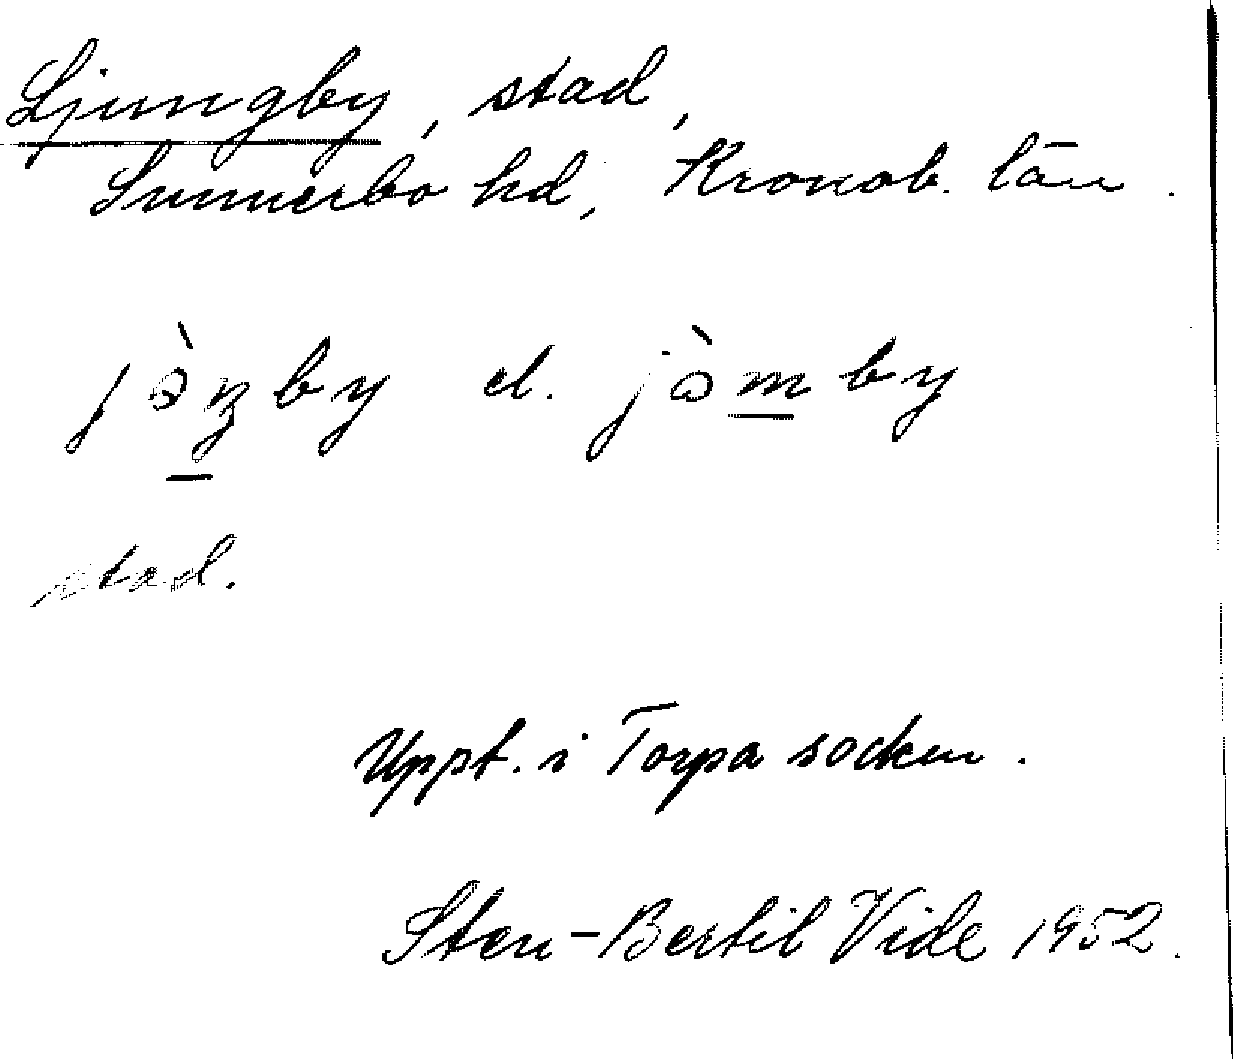 Ljungby, stad,
Sunnerbo hd, Kronob. län.
jə̀ŋby el. jòmby
stad.
Uppt. i Torpa socken.
Sten-Bertil Vide 1952.